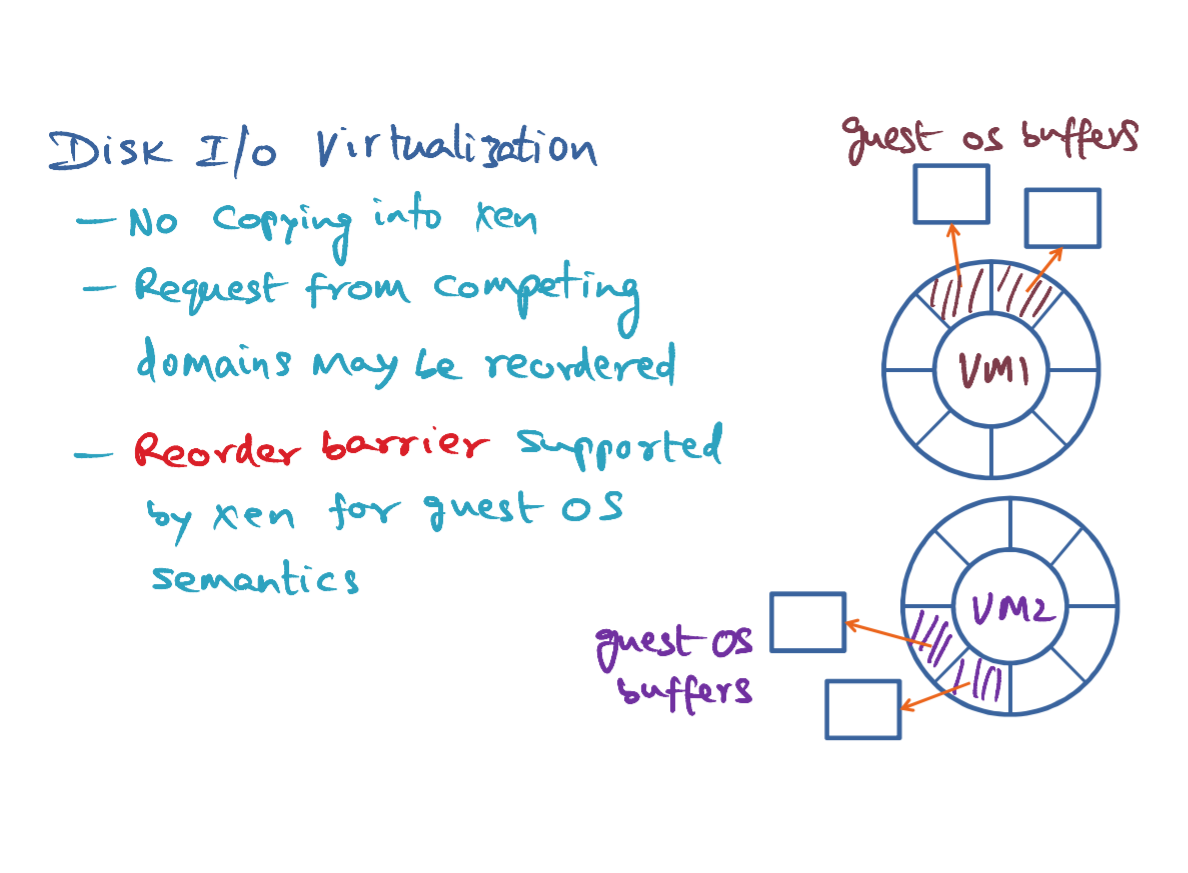 Disk I/O Virtualization
— No copying into Xen
— Request from competing
domains may be reordered
— Reorder barrier supported
by Xen for guest OS
semantics
guest os buffers
VM1
VM2
guest OS
buffers